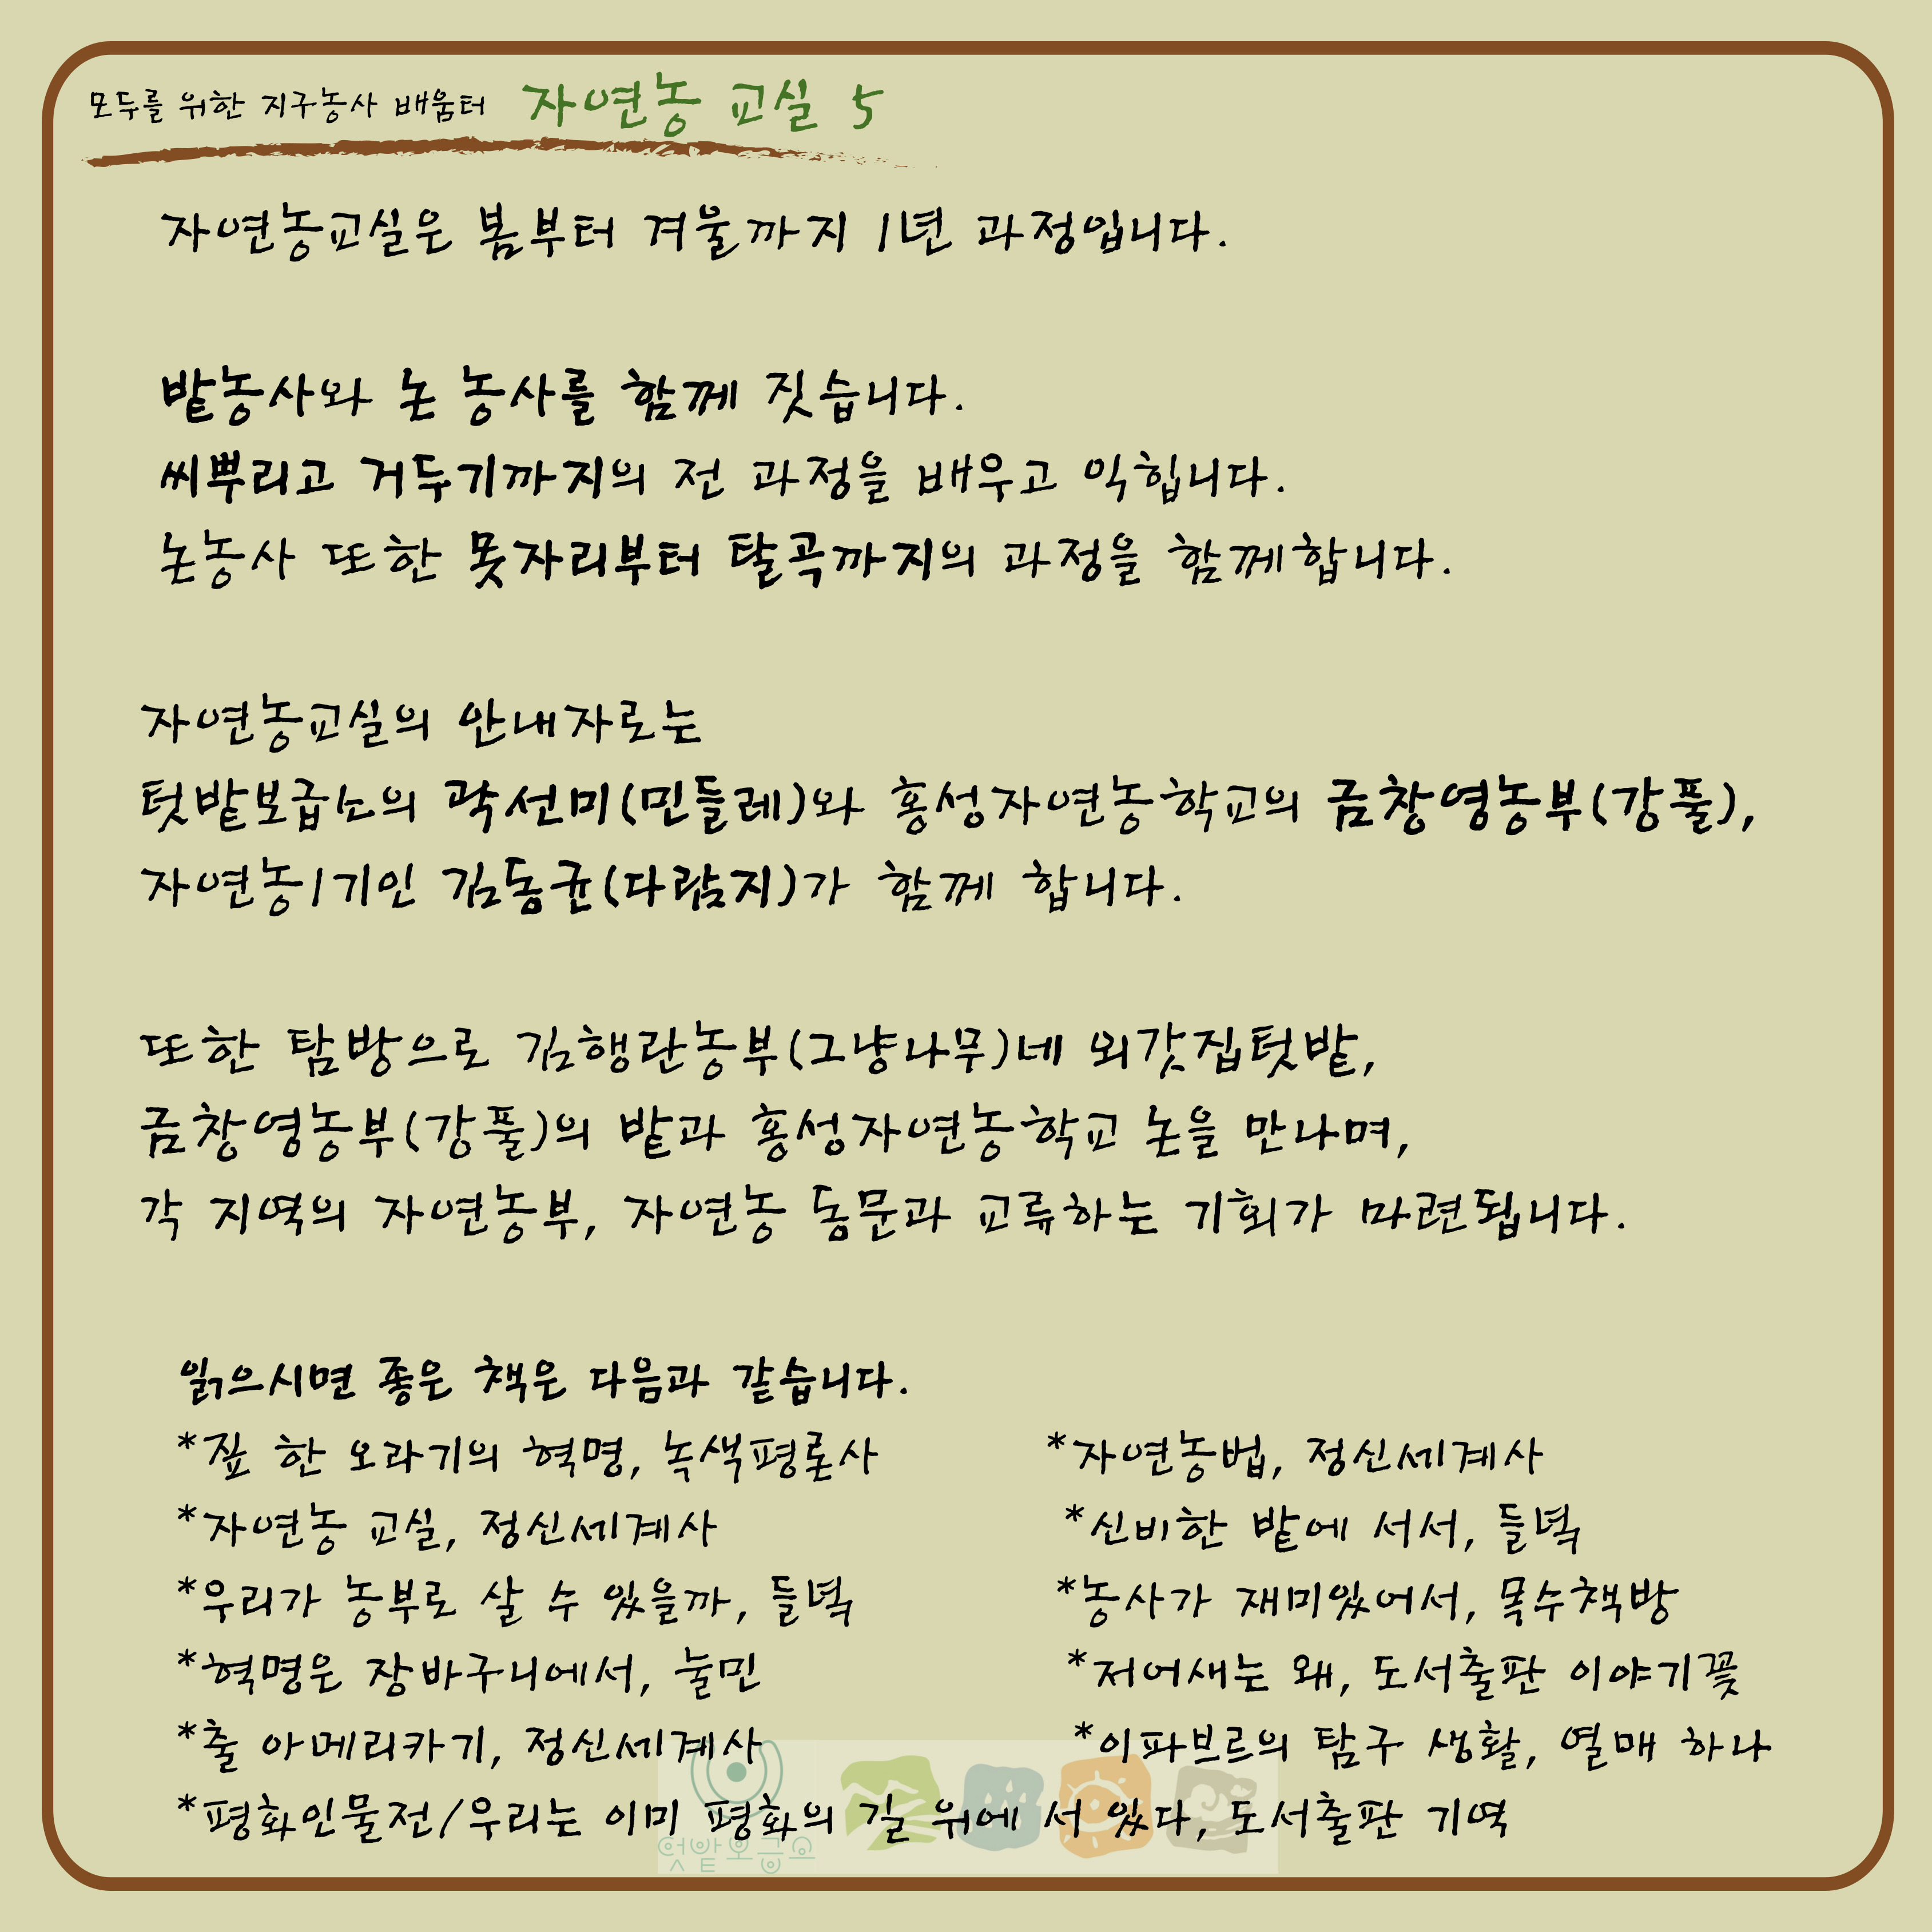 모두를 위한 지구농사 배움터 자연농 교실 5
자연농교실은 봄부터 겨울까지 1년 과정입니다.
밭농사와 논 농사를 함께 짓습니다.
씨뿌리고 거두기까지의 전 과정을 배우고 익힙니다.
논농사 또한 못자리부터 탈곡까지의 과정을 함께합니다.
자연농교실의 안내자로는
텃밭보급소의 곽선미(민들레)와 홍성자연농학교의 금창영농부(강풀),
자연농1기인 김동균(다람지)가 함께 합니다.
또한 탐방으로 김행란농부(그냥나무)네 외갓집텃밭,
금창영농부(강풀)의 밭과 홍성자연농학교 논을 만나며,
각 지역의 자연농부, 자연농 동문과 교류하는 기회가 마련됩니다.
읽으시면 좋은 책은 다음과 같습니다.
*짚 한 오라기의 혁명, 녹색평론사 *자연농법, 정신세계사
*자연농 교실, 정신세계사 *신비한 밭에 서서, 들녘
*우리가 농부로 살 수 있을까, 들녘 *농사가 재미있어서, 목수책방
*혁명은 장바구니에서, 눌민 *저어새는 왜, 도서출판 이야기꽃
*출 아메리카기, 정신세계사 *이파브르의 탐구 생활, 열매 하나
*평화인물전/우리는 이미 평화의 길 위에 서 있다, 도서출판 기역
텃밭보급소